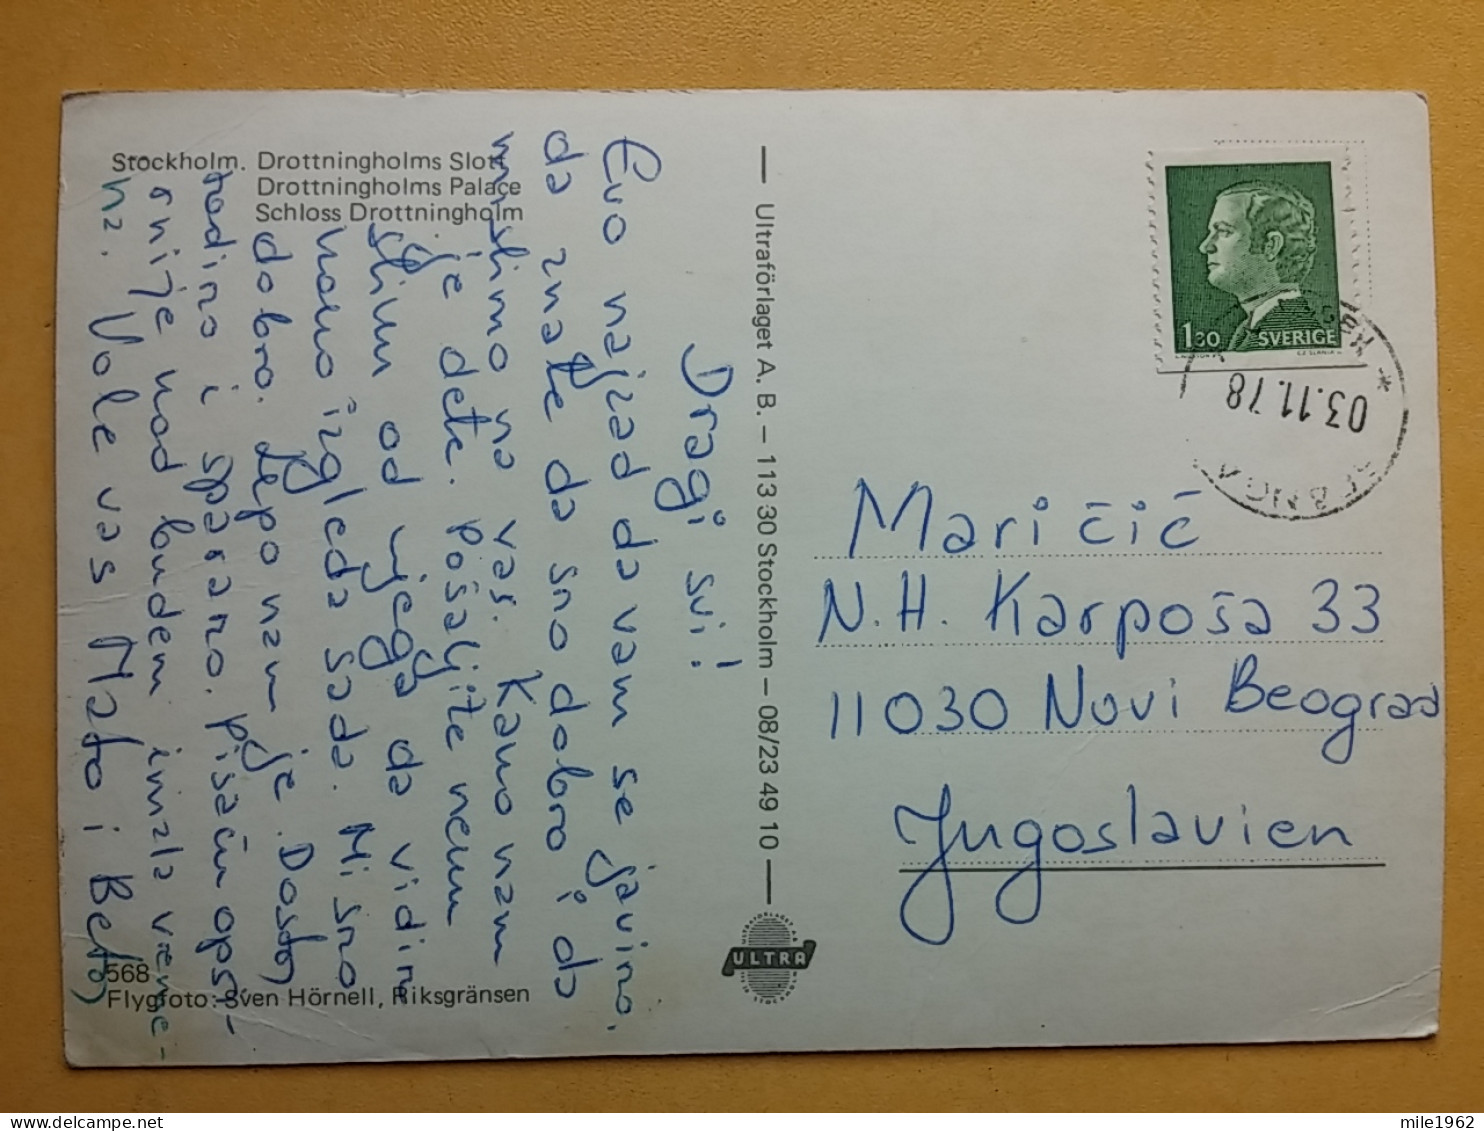 Stockholm. Drottningholms Slott
Drottningholms Palace
Schloss Drottningholm
Dragi svi!
Evo najzad da vam se javimo,
da znate da smo dobro i da
mislimo na vas. Kamo nam
je dete. Pošaljite nam
sliku od njega da vidim
kako izgleda sada. Mi smo
dobro. Lepo nam je. Dosta
radimo i sparamo. Pisaću opš-
irnije kad budem imala vreme-
na. Vole vas Mato i Beta
568
Flygfoto: Sven Hörnell, Riksgränsen
Ultraförlaget A. B. – 113 30 Stockholm – 08/23 49 10
ULTRA
1.30 SVERIGE
03.11.78
Maričić
N.H. Karpoša 33
11030 Novi Beograd
Jugoslavien
mile1962